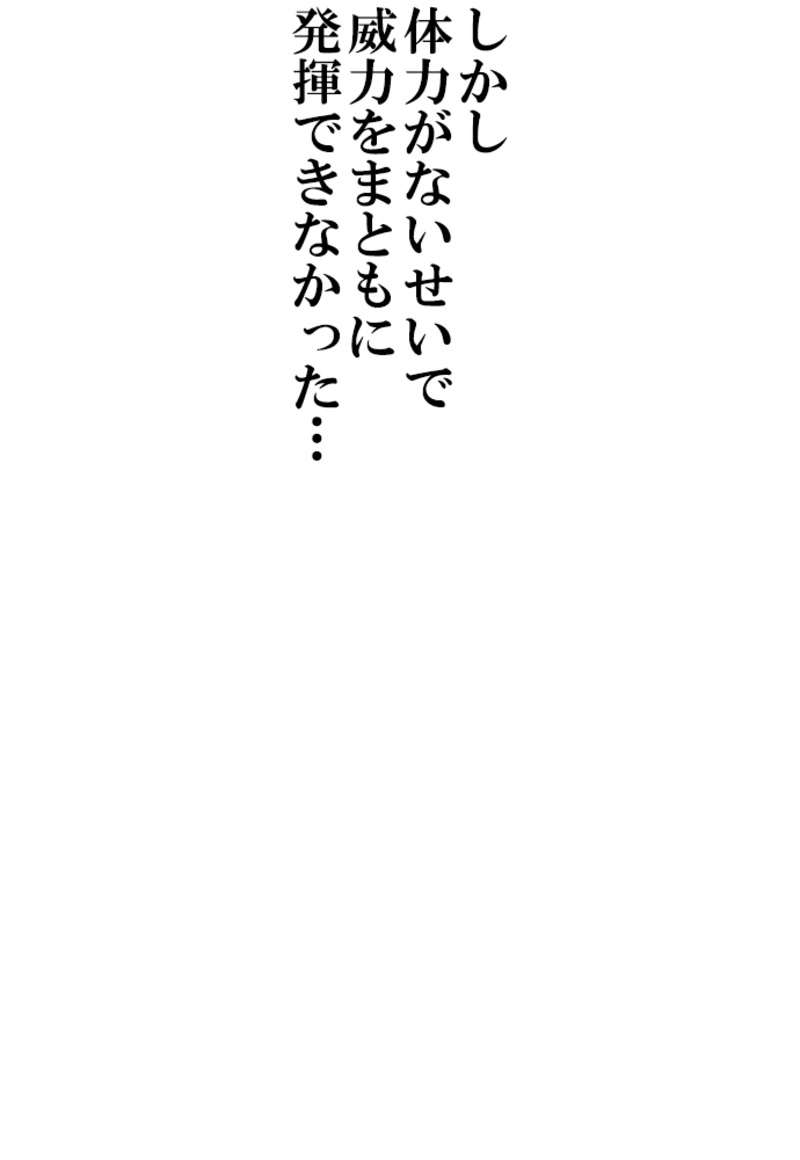 しかし
体力がないせいで
威力をまともに
発揮できなかった…